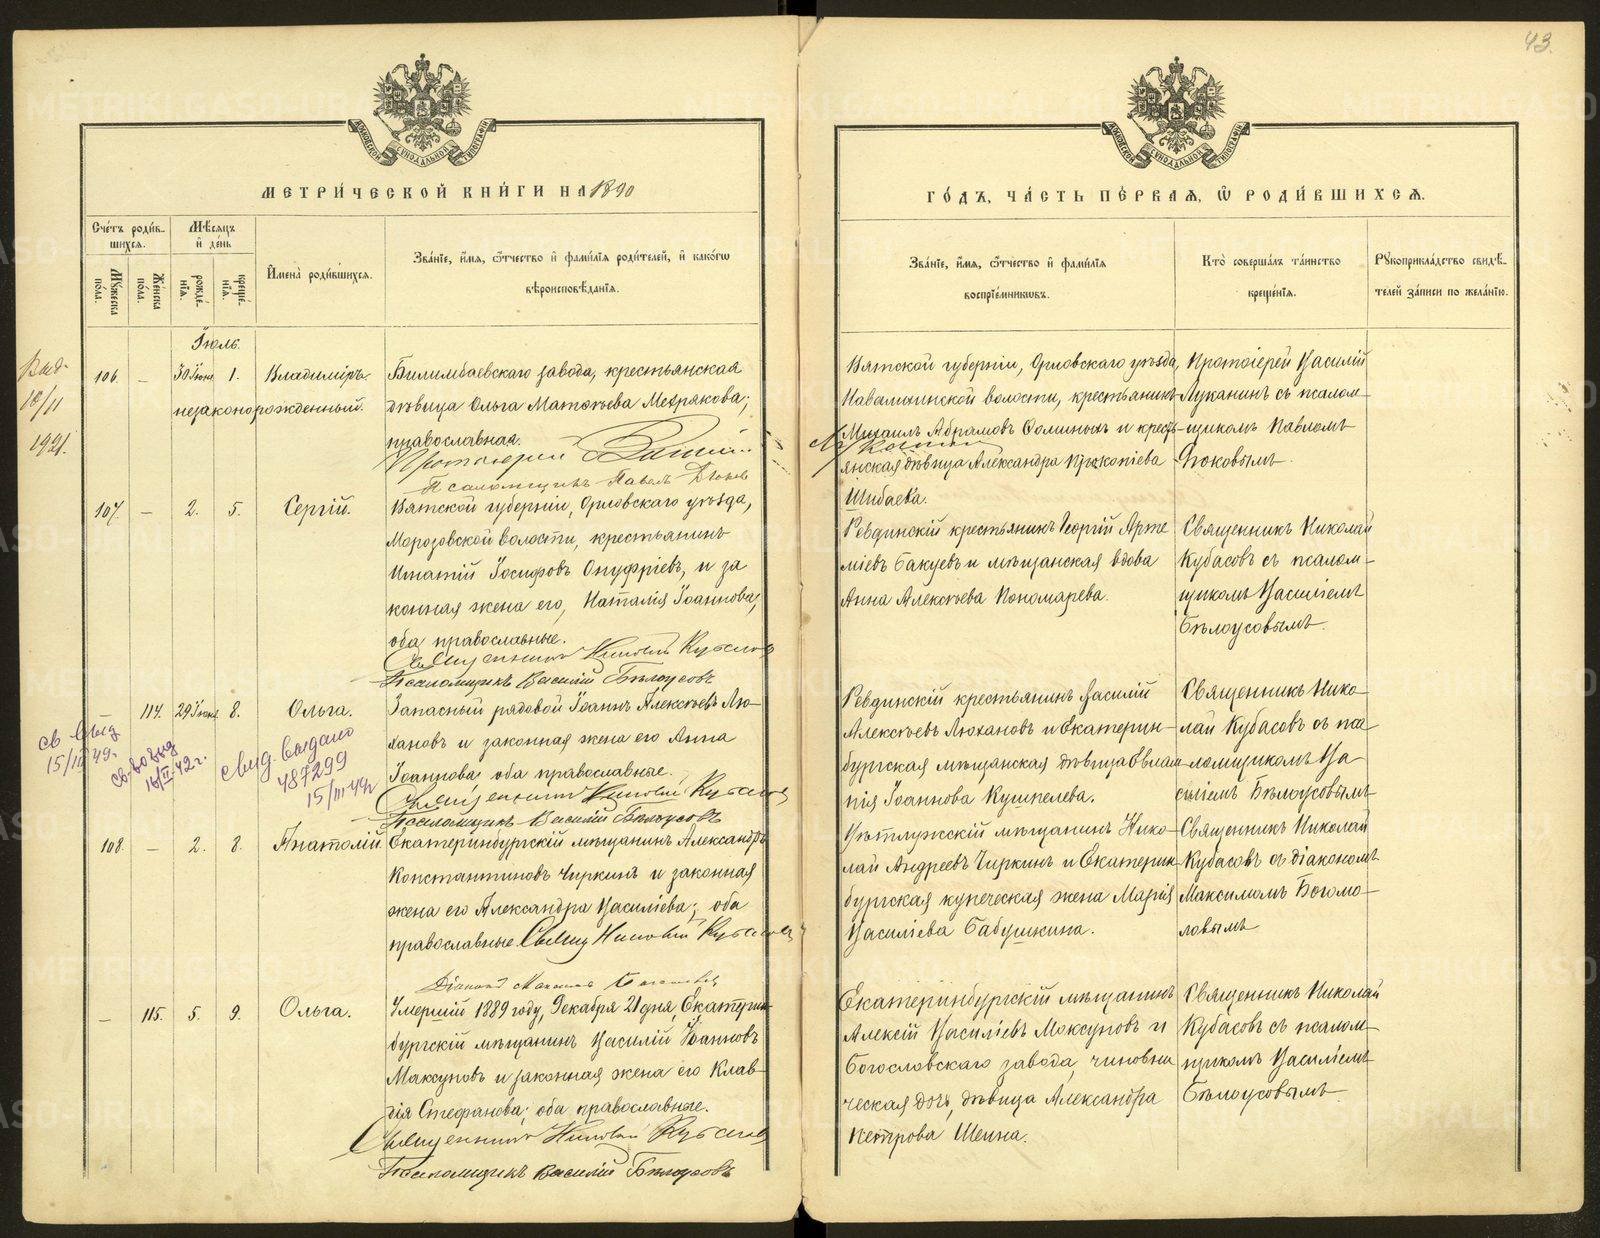 43.
МЕТРИ́ЧЕСКОЙ КНИ́ГИ НА 1890
ГО́ДЪ, ЧА́СТЬ ПЕ́РВАЯ, Ѡ РОДИ́ВШИХСЯ.
Сче́тъ роди́в-
шихся.
Мѣсяцъ
и де́нь
Мꙋжеска
по́ла.
Же́нска
по́ла.
рожде́-
нія.
креще́-
нія.
Имена̀ роди́вшихся.
Зва́ніе, и́мя, ѻ҆́тчество и фами́лія роди́телей, и како́гѡ
вѣроисповѣданія.
Зва́ніе, и́мя, ѻ҆́тчество и фами́лія
воспріе́мниковъ.
Кто̀ соверша́лъ та́инство
креще́нія.
Рꙋкоприкла́дство свидѣ-
телей за́писи по жела́нію.
Іюль.
Выд.
18/II
1921.
106. – 30 Іюня 1. Владиміръ.
незаконорожденный.
Билимбаевскаго завода, крестьянская
дѣвица Ольга Матѳѣева Мезрякова;
православная.
Протоіерей
Псаломщикъ Павелъ
Вятской губерніи, Орловскаго уѣзда,
волости, крестьянинъ
Михаилъ Абрамовъ Ѳоминыхъ и кресть-
янская дѣвица Александра Прокопіева
Шибаева.
Протоіерей Василій
Луканинъ съ псалом-
щикомъ Павломъ
107. – 2. 5. Сергій.
Вятской губерніи, Орловскаго уѣзда,
Морозовской волости, крестьянинъ
Игнатій Іосифовъ Онуфріевъ, и за
конная жена его, Наталія Іоаннова,
оба православные.
Священникъ Николай Кубасовъ
Псаломщикъ Василій Бѣлоусовъ
Ревдинскій крестьянинъ Георгій Арте
міевъ Бакуевъ и мѣщанская вдова
Анна Алексѣева Пономарева.
Священникъ Николай
Кубасовъ съ псалом-
щикомъ Василіемъ
Бѣлоусовымъ.
114. 29 Іюня 8. Ольга.
Запасный рядовой Іоаннъ Алексѣевъ Лю-
хановъ и законная жена его Анна
Іоаннова оба православные.
Священникъ Николай Кубасовъ
Псаломщикъ Василій Бѣлоусовъ
св. выд
15/III 49г.
св-во выд
16/II-42 г.
свид. выдано
487299
15/III 49г
Ревдинскій крестьянинъ Василій
Алексѣевъ Люхановъ и Екатерин-
бургская мѣщанская дѣвица Евлам-
пія Іоаннова Кушпелева.
Священникъ Нико-
лай Кубасовъ съ пса
ломщикомъ Ва-
силіемъ Бѣлоусовымъ
108. – 2. 8. Анатолій.
Екатеринбургскій мѣщанинъ Александръ
Константиновъ Чиркинъ и законная
жена его Александра Василіева; оба
православные. Священ Николай Кубасовъ
Діаконъ Максимъ Богомоловъ
Вѣтлужскій мѣщанинъ Нико-
лай Андреевъ Чиркинъ и Екатерин-
бургская купеческая жена Марія
Василіева Бабушкина.
Священникъ Николай
Кубасовъ съ діакономъ
Максимомъ Богомо-
ловымъ
– 115. 5. 9. Ольга.
Умершій 1889 году, Декабря 21 дня, Екатерин-
бургскій мѣщанинъ Василій Іоанновъ
Максуновъ и законная жена его Клав-
дія Стефанова; оба православные.
Священникъ Николай Кубасовъ
Псаломщикъ Василій Бѣлоусовъ
Екатеринбургскій мѣщанинъ
Алексій Василіевъ Максуновъ и
Богословскаго завода, чиновни
ческая дочь, дѣвица Александра
Петрова Шеина.
Священникъ Николай
Кубасовъ съ псалом-
щикомъ Василіемъ
Бѣлоусовымъ.